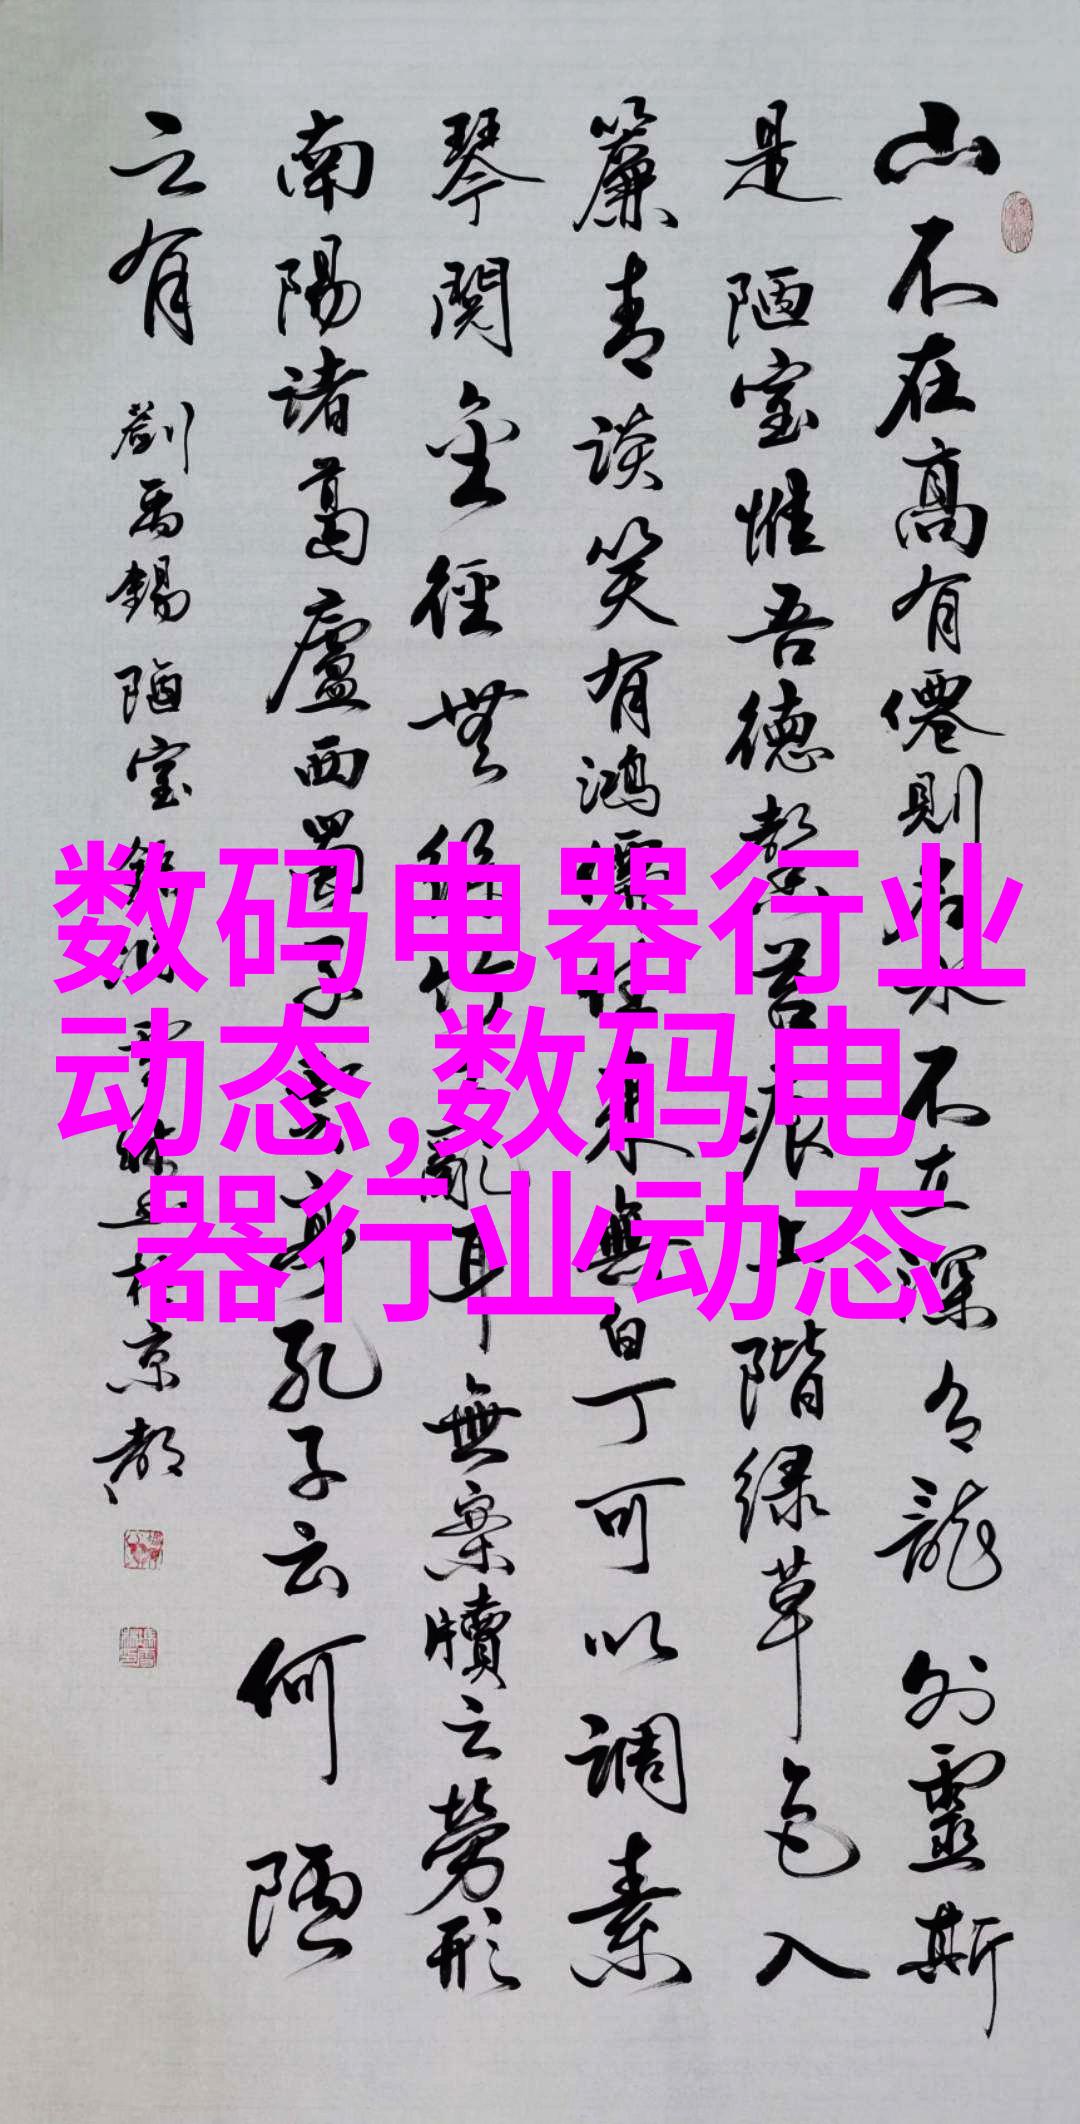 山不在高有僊則名水不在深有龍則靈斯
是陋室惟吾德馨苔痕上階緑草色入
簾青談笑有鴻儒往來無白丁可以調素
琴閱金徑無絲竹之亂耳無案牘之勞形
南陽諸葛廬西蜀子雲亭孔子云何陋
之有 劉禹錫 陋室銘 京都
数码电器行业
动态,数码电
器行业动态